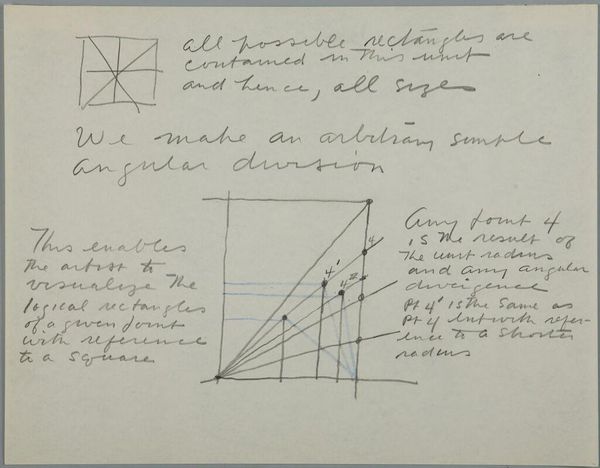 all possible rectangles are
contained in this unit
and hence, all sizes
We make an arbitrary simple
angular division
This enables
the artist to
visualize the
logical rectangles
of a given point
with reference
to a square
4
4'
4
Any point 4
is the result of
the unit radius
and any angular
divergence
Pt 4' is the same as
Pt 4 but with refer-
ence to a shorter
radius